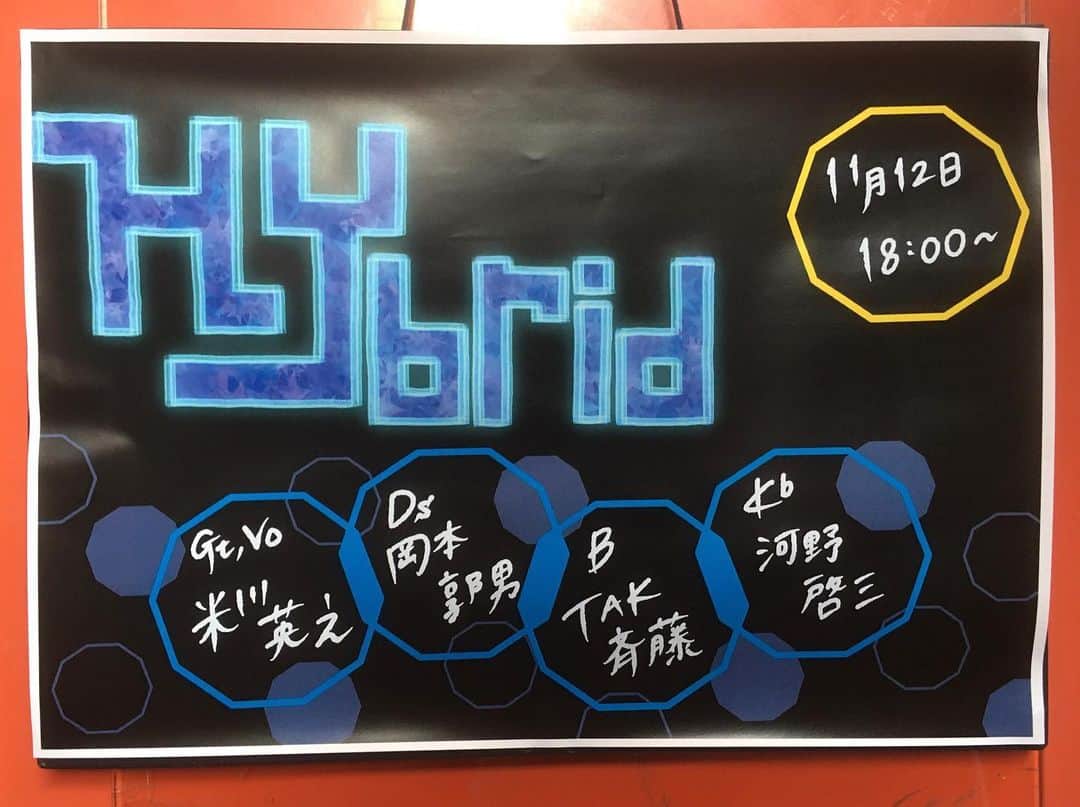 Hybrid
11月12日
18:00~
Gt,Vo
米川
英之
Ds
岡本
郭男
B
TAK
斉藤
Kb
河野
啓三